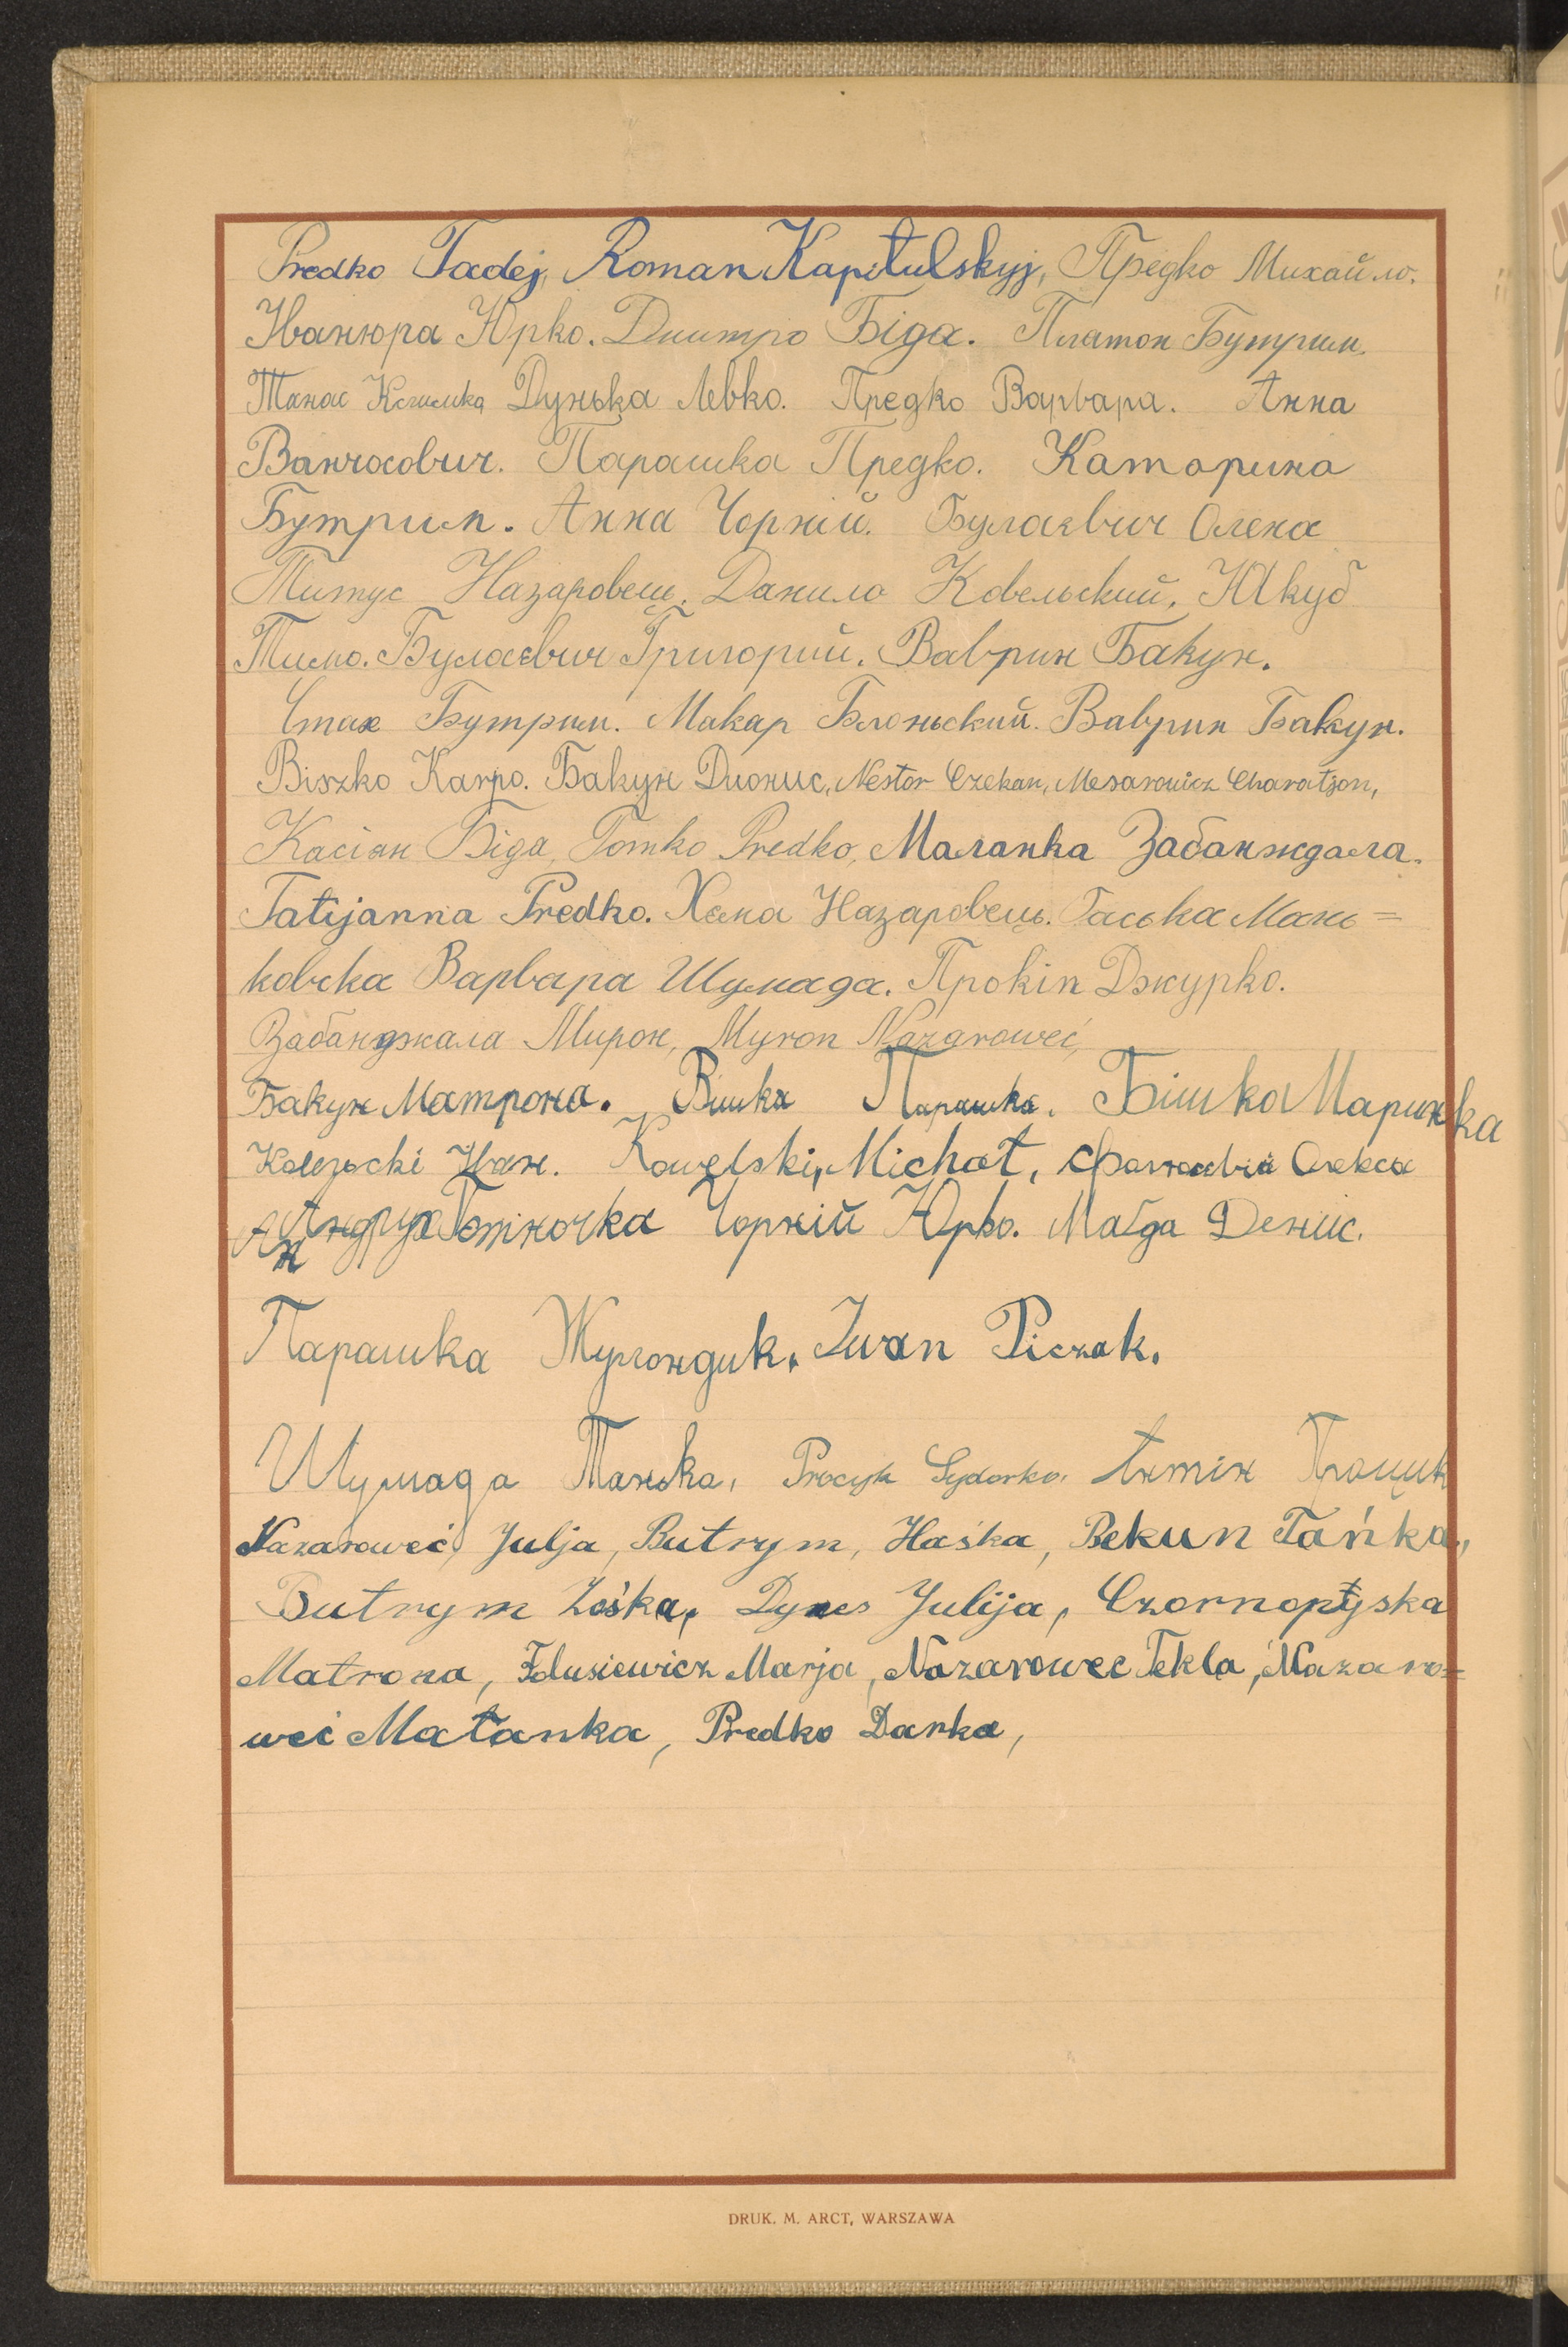 Predko Tadej, Roman Kapitulskyj, Предко Михайло.
Иванюра Юрко. Дмитро Біда. Платон Бутрим.
Танас Дунька Левко. Предко Варвара. Анна
Парашка Предко. Катарина
Бутрим. Анна Чорній. Булаєвич Олена
Титус Назаровец. Данило Ковельский. Якуб
Тимо. Булаєвич Григорий. Ваврин Бакун.
Стах Бутрим. Макар Блоньский. Ваврин Бакун.
Biszko Karpo. Бакун Дионис, Nestor Czekan,
Касіян Біда, Tomko Predko, Маланка Забанждала.
Tatijanna Predko. Назаровець. Гаська Мань=
ковска Варвара Шумада. Прокіп Джурко.
Забанджала Мирон, Myron Nazaroweć,
Бакун Матрона. Парашка. Бішка Маринка
Иван. Kowelski, Michał, Олекса
Андрух Чорній Юрко. Маґда Деніс.
Парашка Iwan Piczak.
Шумада Танька, Procyk Sydorko, Антін Процик
Nazaroweć Julja, Butrym, Haśka, Bekun Tańka,
Butrym Zośka, Julija, Czornopyska
Matrona, Marja, Nazarowec Tekla, Nazaro=
weć Małanka, Predko Darka,
DRUK. M. ARCT, WARSZAWA